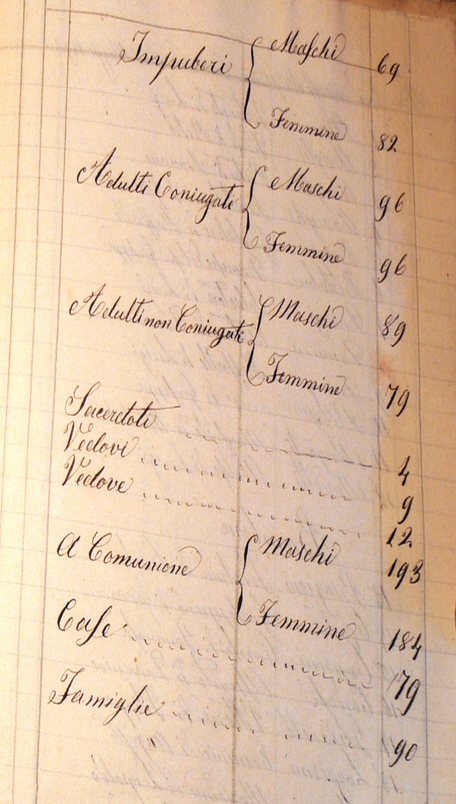 Impuberi { Maschi 69
Femmine 82
Adulti Coniugati { Maschi 96
Femmine 96
Adulti non Coniugati { Maschi 89
Femmine 79
Sacerdoti 4
Vedovi 9
Vedove 12
A Comunione { Maschi 193
Femmine 184
Case 79
Famiglie 90